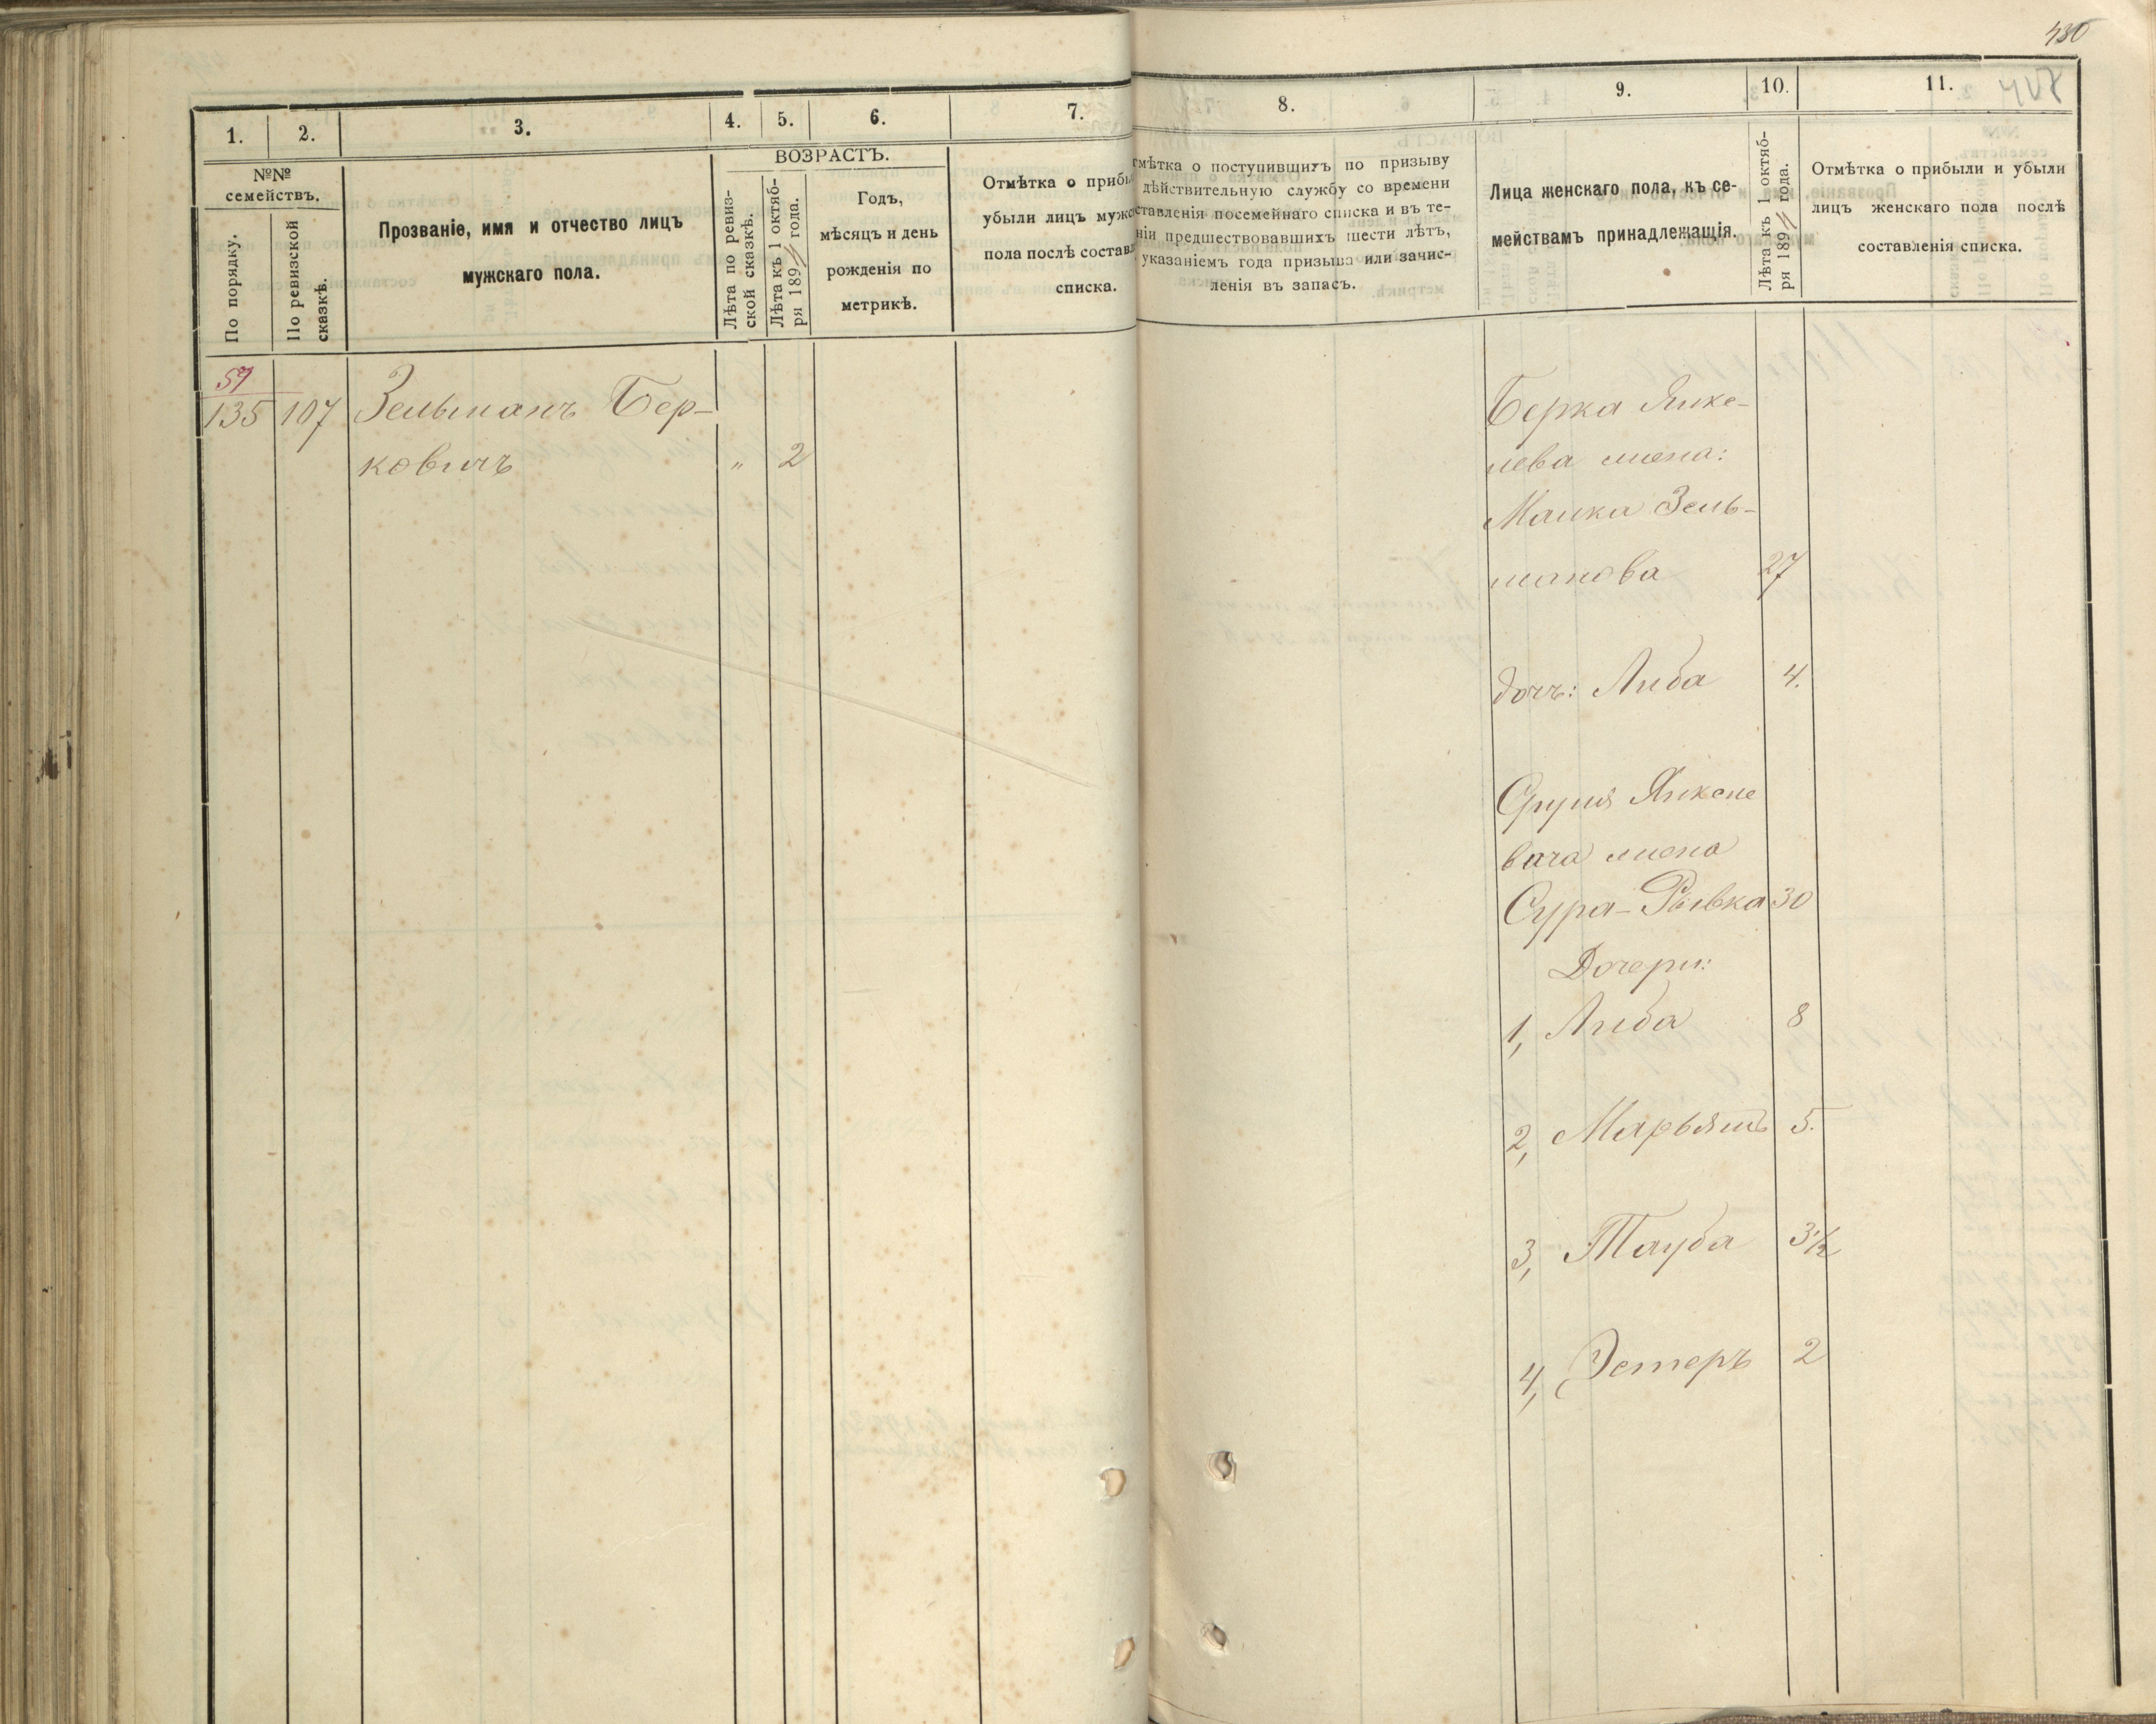 480
1.
2.
3.
4.
5.
6.
7.
8.
9.
10.
11.
№№ семействъ.
По порядку.
По ревизской сказкѣ.
Прозваніе, имя и отчество лицъ
мужскаго пола.
ВОЗРАСТЪ.
Лѣта по ревиз-
ской сказкѣ.
Лѣта къ 1 октяб-
ря 189 года.
Годъ,
мѣсяцъ и день
рожденія по
метрикѣ.
Отмѣтка о прибы
убыли лицъ мужс
пола послѣ составл
списка.
тмѣтка о поступившихъ по призыву
дѣйствительную службу со времени
ставленія посемейнаго списка и въ те-
ніи предшествовавшихъ шести лѣтъ,
указаніемъ года призыва или зачис-
ленія въ запасъ.
Лица женскаго пола, къ се-
мействамъ принадлежащія.
Лѣта къ 1 октяб-
ря 189 года.
Отмѣтка о прибыли и убыли
лицъ женскаго пола послѣ
составленія списка.
57
135 107 Зельманъ Бер-
ковичъ " 2
Берка Янке-
лева жена:
Малка Зель-
манова 27
дочь: Либа 4.
Янкеле
вича жена
Сура-Рывка 30
Дочери:
1, Либа 8
2, Марьяшь 5.
3, Тауба 3½
4, Эстеръ 2